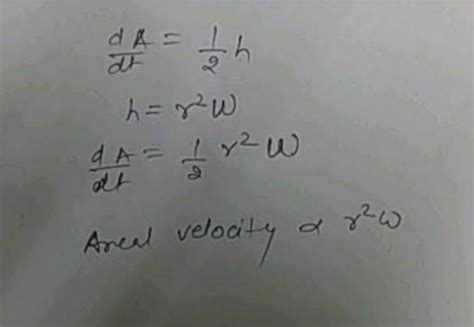 dA/dt = 1/2 h
h = r²W
dA/dt = 1/2 r² W
Areal velocity α r²ω